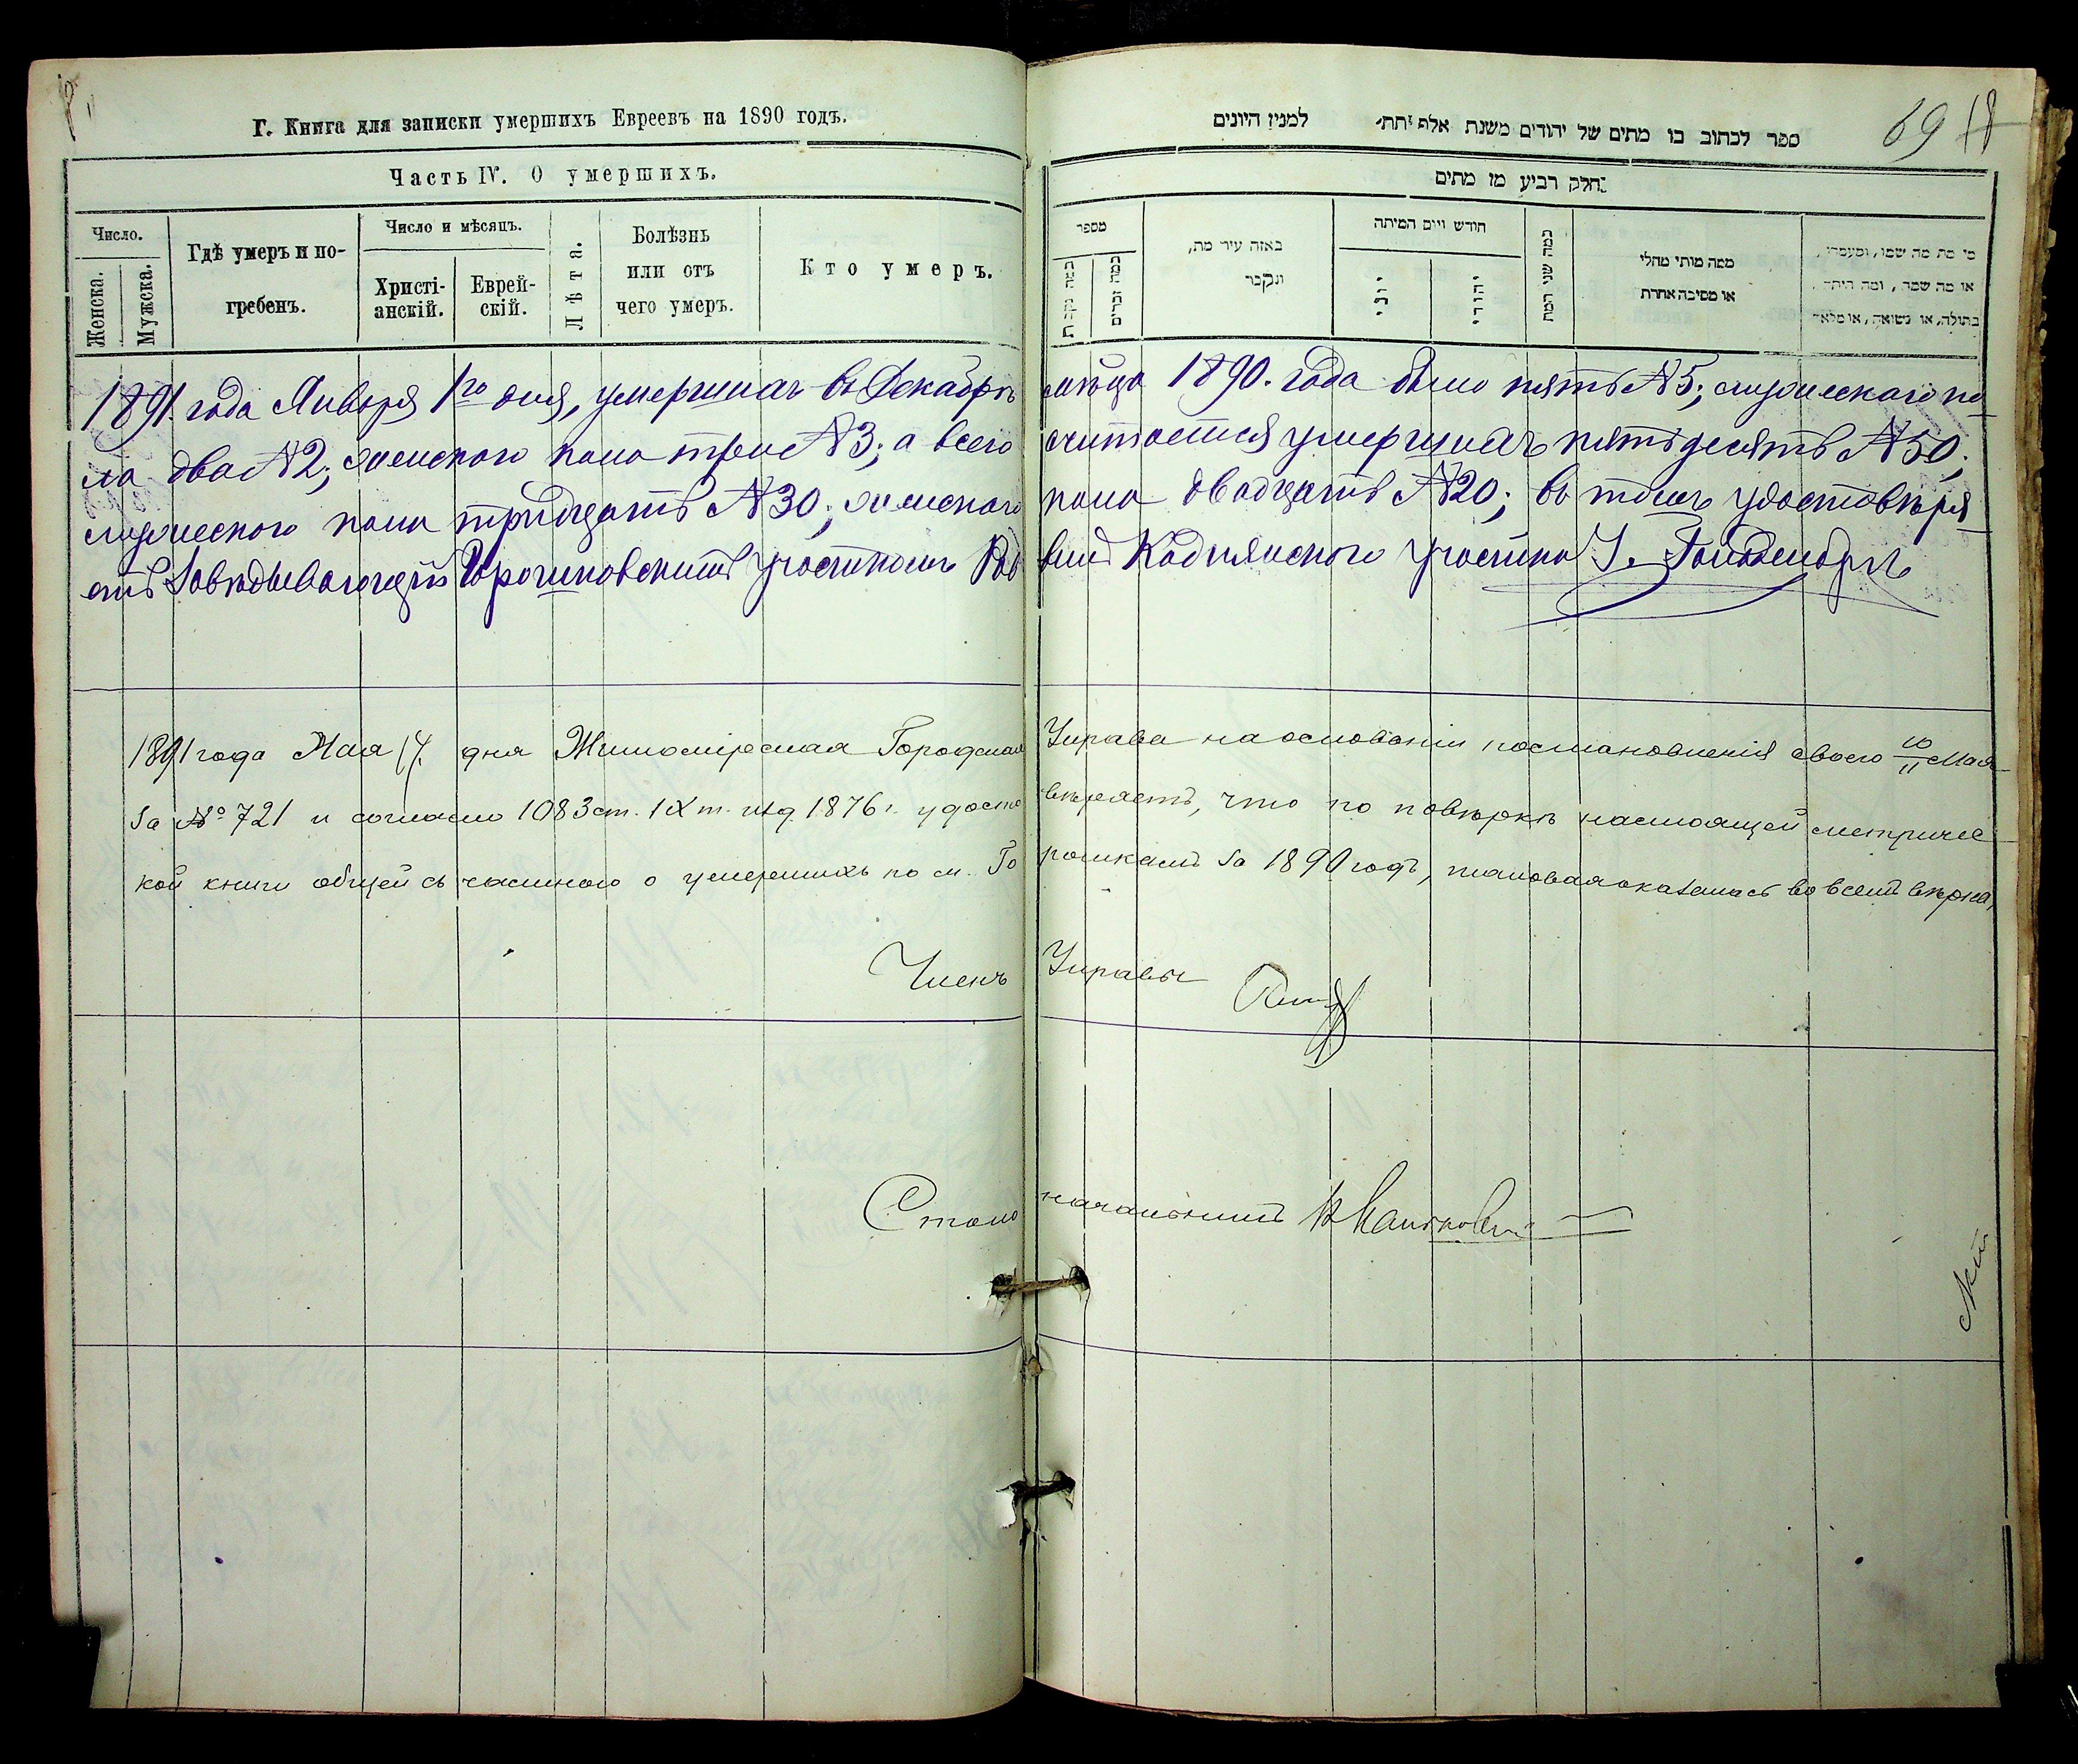 Г. Книга для записки умершихъ Евреевъ на 1890 годъ.
Часть IV. О умершихъ.
Число.
Женска.
Мужска.
Гдѣ умеръ и по-
гребенъ.
Число и мѣсяцъ.
Христі-
анскій.
Еврей-
скій.
Лѣта.
Болѣзнь
или отъ
чего умеръ.
Кто умеръ.
ספר לכתוב בו מתים של יהודים משנת אלף תתי למנין היונים
69 18
חלק רביע מן מתים
מספר
כמה נקבות
כמה זכרים
באזה עיר מת,
ונקבר
חודש ויום המיתה
יוני
יהודי
כמה שני המת
ממה מותו מחלי
או מסיבה אחרת
מי מת מה שמו, ומעמדו,
או מה שמה, ומה היתה,
בתולה, או נשואה, או
1891. года Января 1го дня, умершихъ въ Декабрѣ мѣцѣ 1890. года было пять №5; мужескаго по-
ла два №2, женскаго пола три №3; а всего считается умершихъ пятьдесятъ №50;
мужескаго пола тридцать №30; женскаго пола двадцать №20; въ томъ удостовѣря-
етъ Завѣдывающій Горошковскимъ участкомъ Рав винъ Коднянскаго участка
1891 года Мая 14 дня Житомірская Городская Управа на основаніи постановленія своего 10/11 Мая
за № 721 и согласно 1083 ст. IX т. изд. 1876 г. удосто вѣряетъ, что по повѣркѣ настоящей метричес-
кой книги общей съ частною о умершихъ по м. Го рошкамъ за 1890 годъ, таковая оказалась во всемъ вѣрна,
Членъ Управы
Столо начальникъ